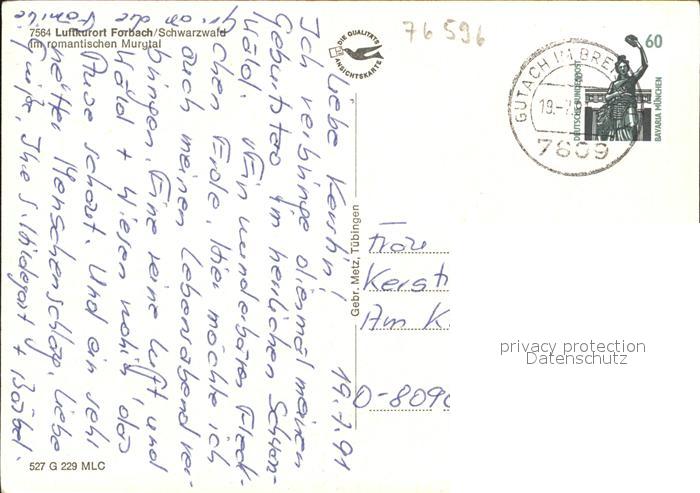 7564 Luftkurort Forbach/Schwarzwald
im romantischen Murgtal
DIE QUALITÄTS
ANSICHTSKARTE
76 596
60
DEUTSCHE BUNDESPOST
BAVARIA MÜNCHEN
GUTACH IM BREI
19.-7.
7809
19.7.91
Liebe Kerstin!
Ich verbringe diesmal meinen
Geburtstag im herrlichen Schwarz-
wald. Ein wunderbares Fleck-
chen Erde. Hier möchte ich
auch meinen Lebensabend ver-
bringen. Eine reine Luft und
Wald + Wiesen wohin das
Auge schaut. Und ein sehr
netter Menschenschlag. Liebe
Grüße, Ihre S. Hildegart + Bärbel.
an die
Familie
Gebr. Metz, Tübingen
Frau
Kersti
Am K
O-8090
privacy protection
Datenschutz
527 G 229 MLC